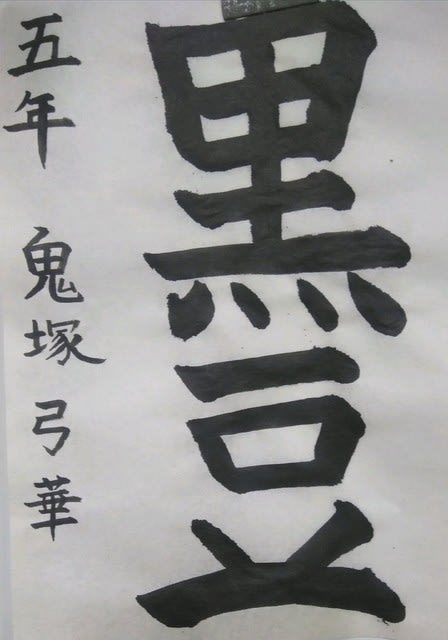 黒豆
五年 鬼塚弓華